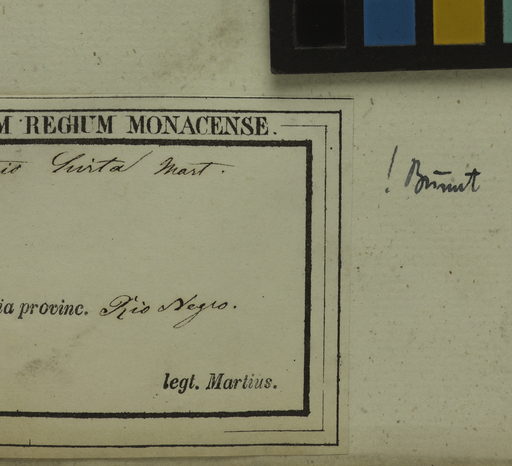 M REGIUM MONACENSE.
io hirta Mart.
! Bünut
ia provinc. Rio Negro.
legt. Martius.